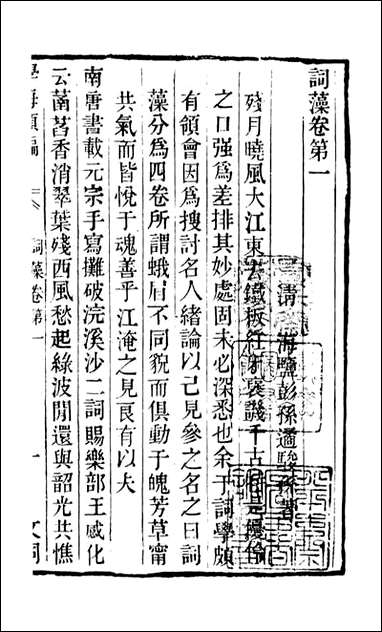 詞藻卷第一
清 海鹽彭孫遹駿孫著
殘月曉風大江東去鐵板紅牙褒譏千古特是優伶
之口强爲差排其妙處固未必深悉也余于詞學頗
有領會因爲搜討名人緒論以己見參之名之曰詞
藻分爲四卷所謂蛾眉不同貌而俱動于魄芳草甯
共氣而皆悅于魂善乎江淹之見良有以夫
南唐書載元宗手寫攤破浣溪沙二詞賜樂部王感化
云菡萏香消翠葉殘西風愁起綠波閒還與韶光共憔
學海類編 詞藻卷第一 一 文詞